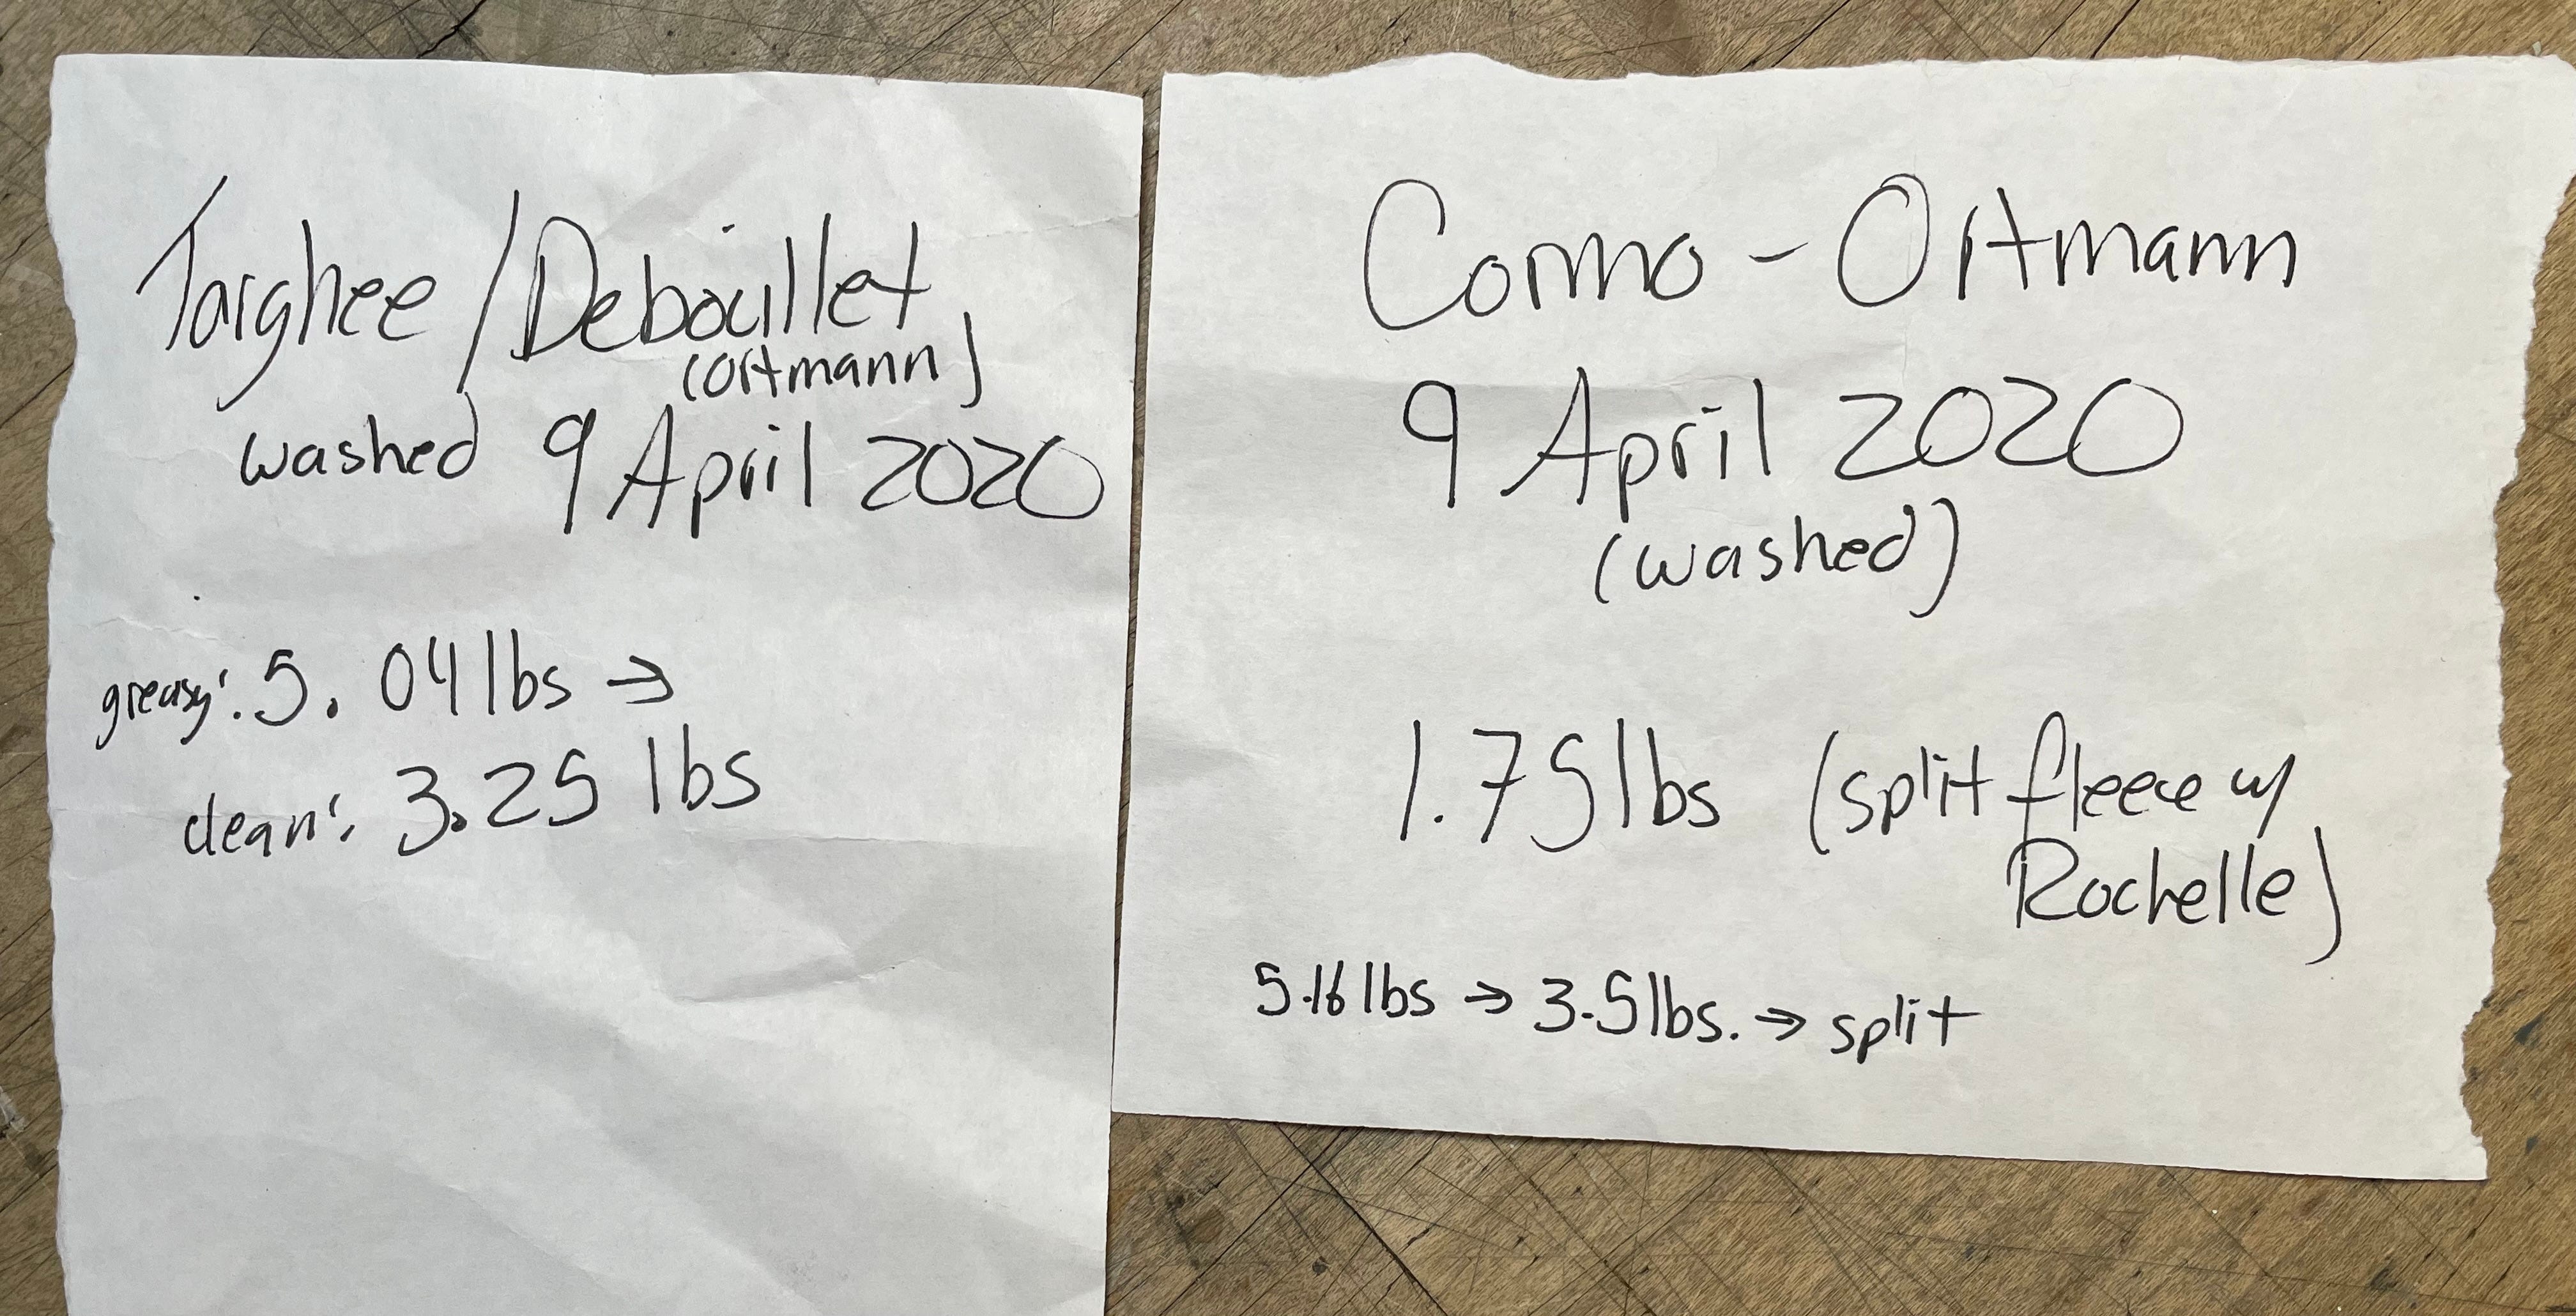 Targhee / Debouillet
(Ortmann)
washed 9 April 2020
greasy: 5.04 lbs →
clean: 3.25 lbs
Cormo - Ortmann
9 April 2020
(washed)
1.75 lbs (split fleece w/
Rochelle)
5.16 lbs → 3.5 lbs. → split